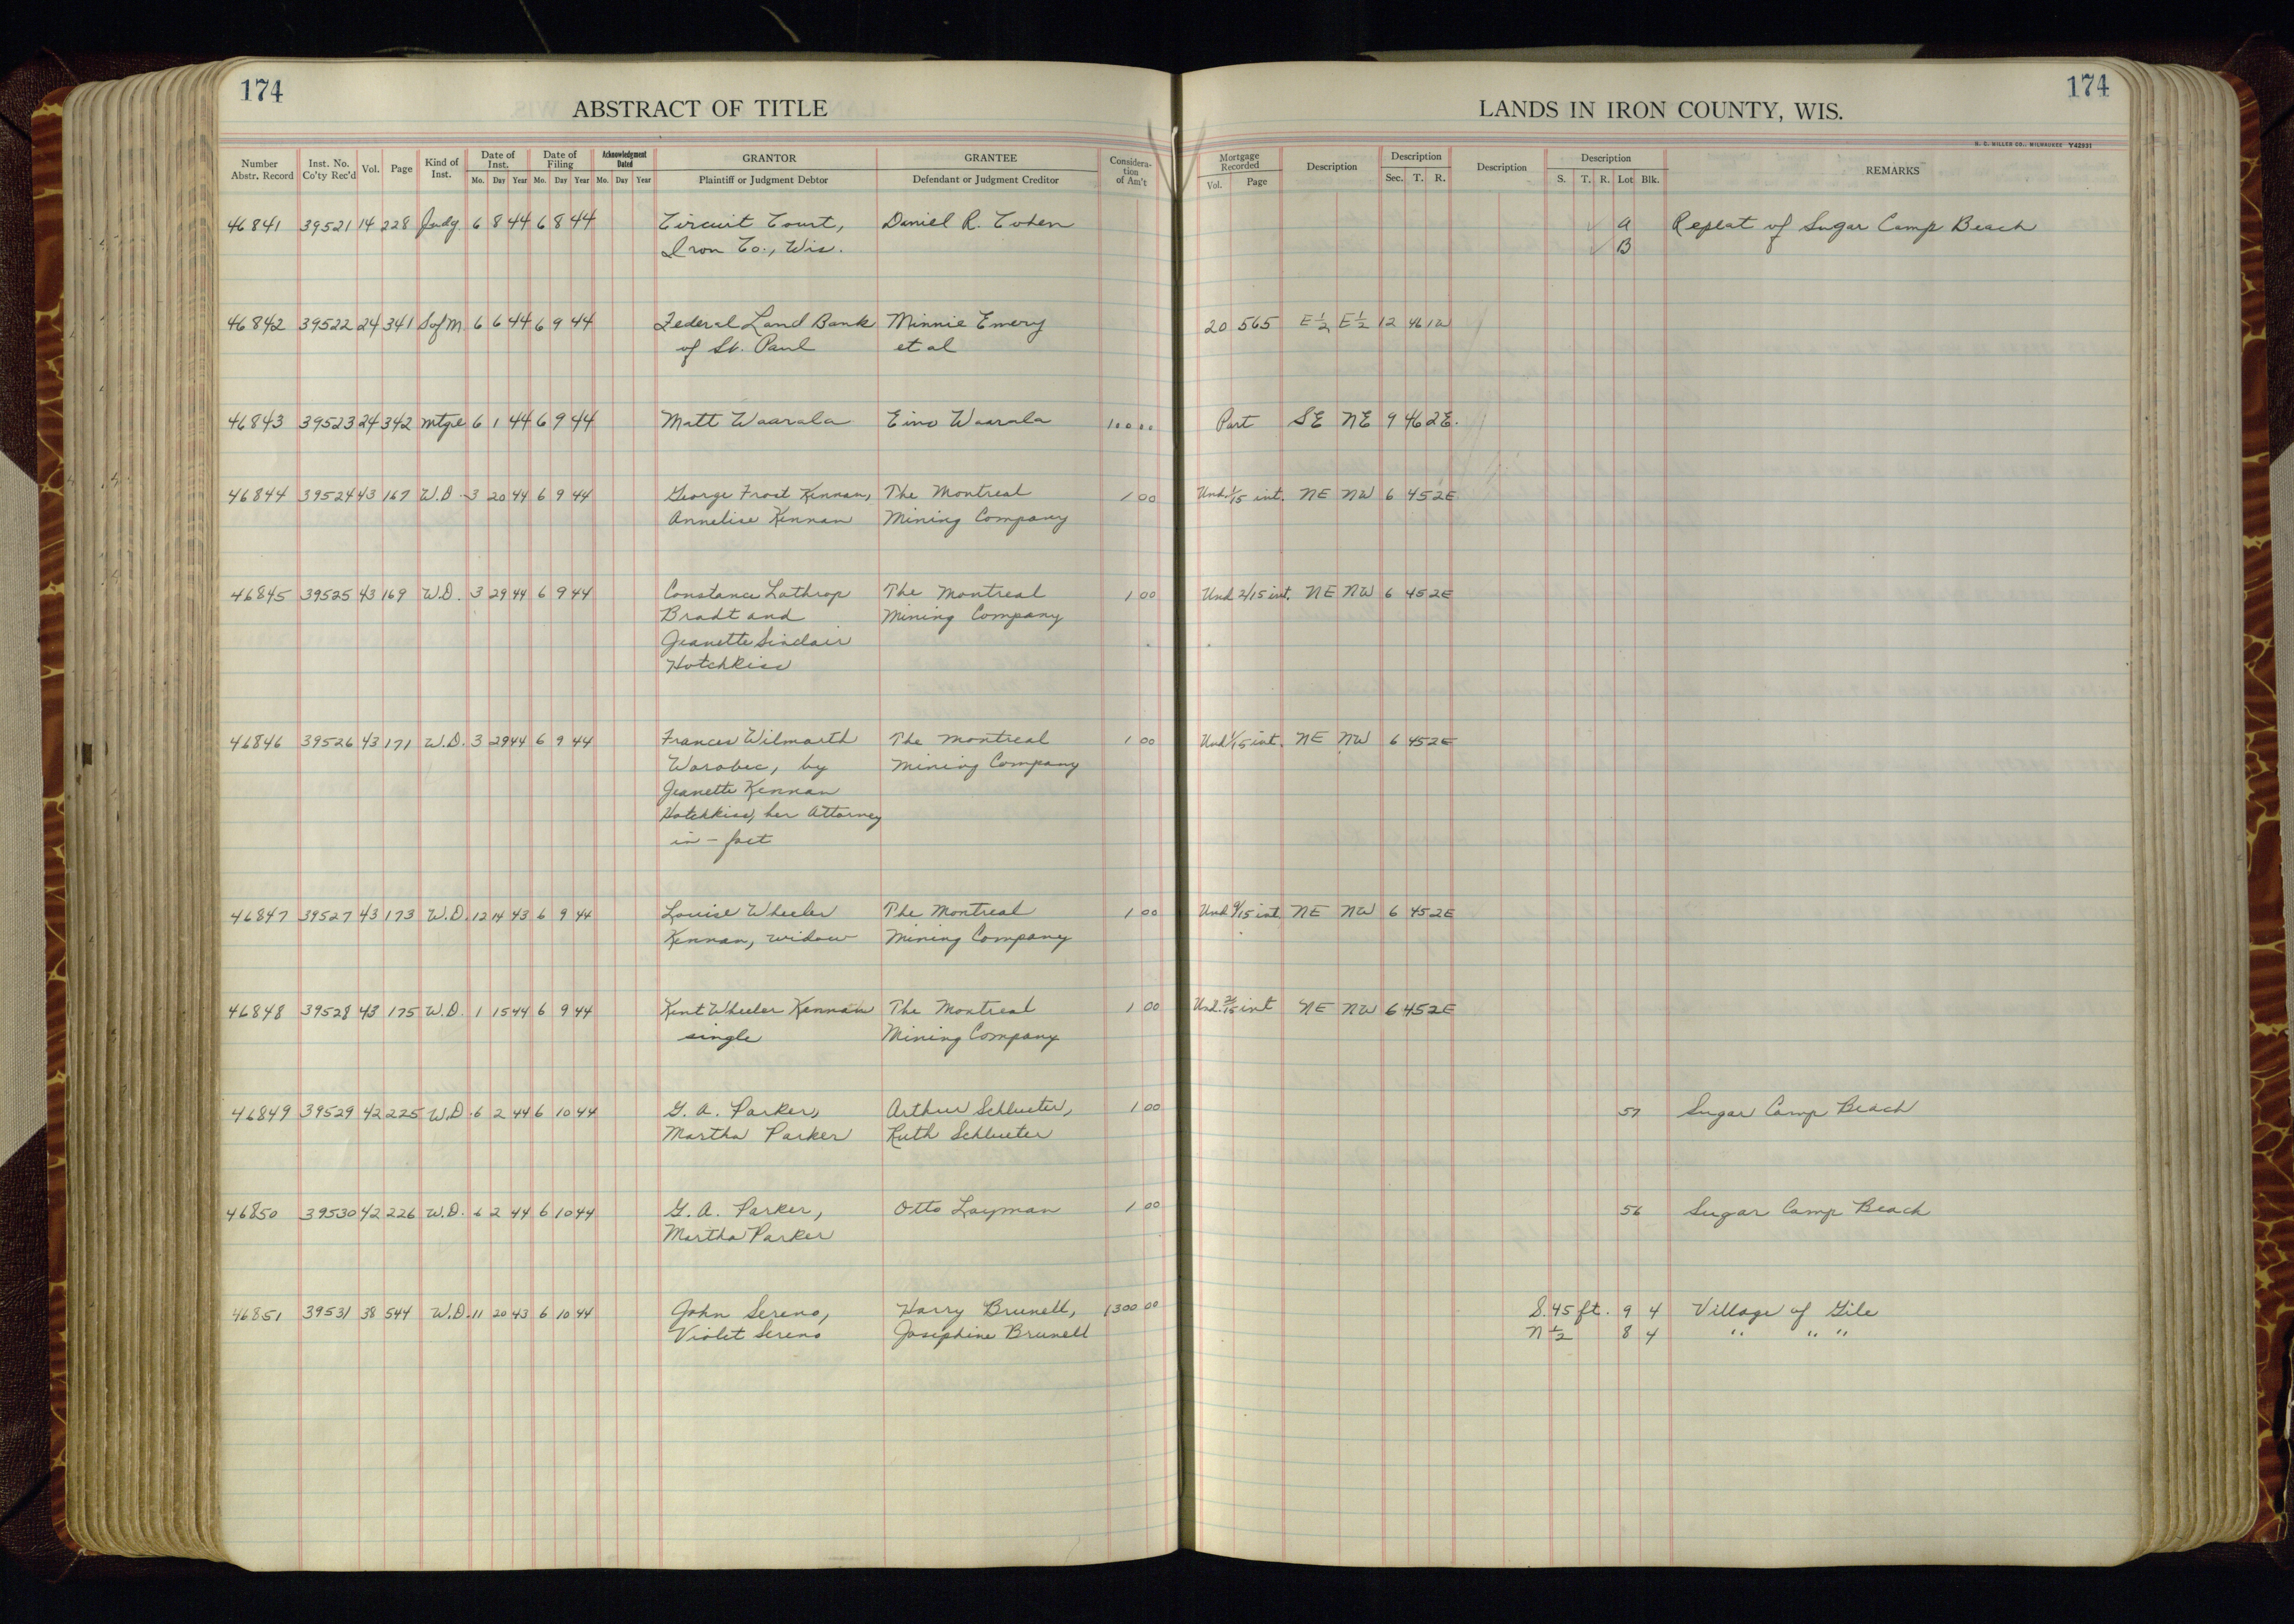 174
174
ABSTRACT OF TITLE
LANDS IN IRON COUNTY, WIS.
H. C. MILLER CO., MILWAUKEE Y42931
Number Abstr. Record Inst. No. Co'ty Rec'd Vol. Page Kind of Inst. Date of Inst. Mo. Day Year Date of Filing Mo. Day Year Acknowledgment Dated Mo. Day Year GRANTOR Plaintiff or Judgment Debtor GRANTEE Defendant or Judgment Creditor Consideration of Am't Mortgage Recorded Vol. Page Description Description Sec. T. R. Description Description S. T. R. Lot Blk. REMARKS
46841 39521 14 228 Judg 6 8 44 6 8 44 Circuit Court, Daniel R. Cohen A Replat of Sugar Camp Beach
Iron Co., Wis. B
46842 39522 24 341 S of M 6 6 44 6 9 44 Federal Land Bank Minnie Emery 20 565 E½ E½ 12 46 1W
of St. Paul et al
46843 39523 24 342 mtge 6 1 44 6 9 44 Matt Waarala Eino Waarala 100 00 Part SE NE 9 46 2E.
46844 39524 43 167 W.D. 3 20 44 6 9 44 George Frost Kennan, The Montreal 1 00 Und. 1/15 int. NE NW 6 45 2E
Annelise Kennan Mining Company
46845 39525 43 169 W.D. 3 29 44 6 9 44 Constance Lathrop The Montreal 1 00 Und 2/15 int. NE NW 6 45 2E
Bradt and Mining Company
Jeanette Sinclair
Hotchkiss
46846 39526 43 171 W.D. 3 29 44 6 9 44 Frances Wilmarth The Montreal 1 00 Und 1/15 int. NE NW 6 45 2E
Worobec, by Mining Company
Jeanette Kennan
Hotchkiss, her Attorney
in-fact
46847 39527 43 173 W.D. 12 14 43 6 9 44 Louise Wheeler The Montreal 1 00 Und 9/15 int. NE NW 6 45 2E
Kennan, widow Mining Company
46848 39528 43 175 W.D. 1 15 44 6 9 44 Kent Wheeler Kennan The Montreal 1 00 Und. 2/15 int NE NW 6 45 2E
single Mining Company
46849 39529 42 225 W.D. 6 2 44 6 10 44 G. A. Parker, Arthur Schlueter, 1 00 57 Sugar Camp Beach
Martha Parker Ruth Schlueter
46850 39530 42 226 W.D. 6 2 44 6 10 44 G. A. Parker, Otto Layman 1 00 56 Sugar Camp Beach
Martha Parker
46851 39531 38 544 W.D. 11 20 43 6 10 44 John Sereno, Harry Brunell, 1300 00 S. 45 ft. 9 4 Village of Gile
Violet Sereno Josephine Brunell N½ 8 4 " " "